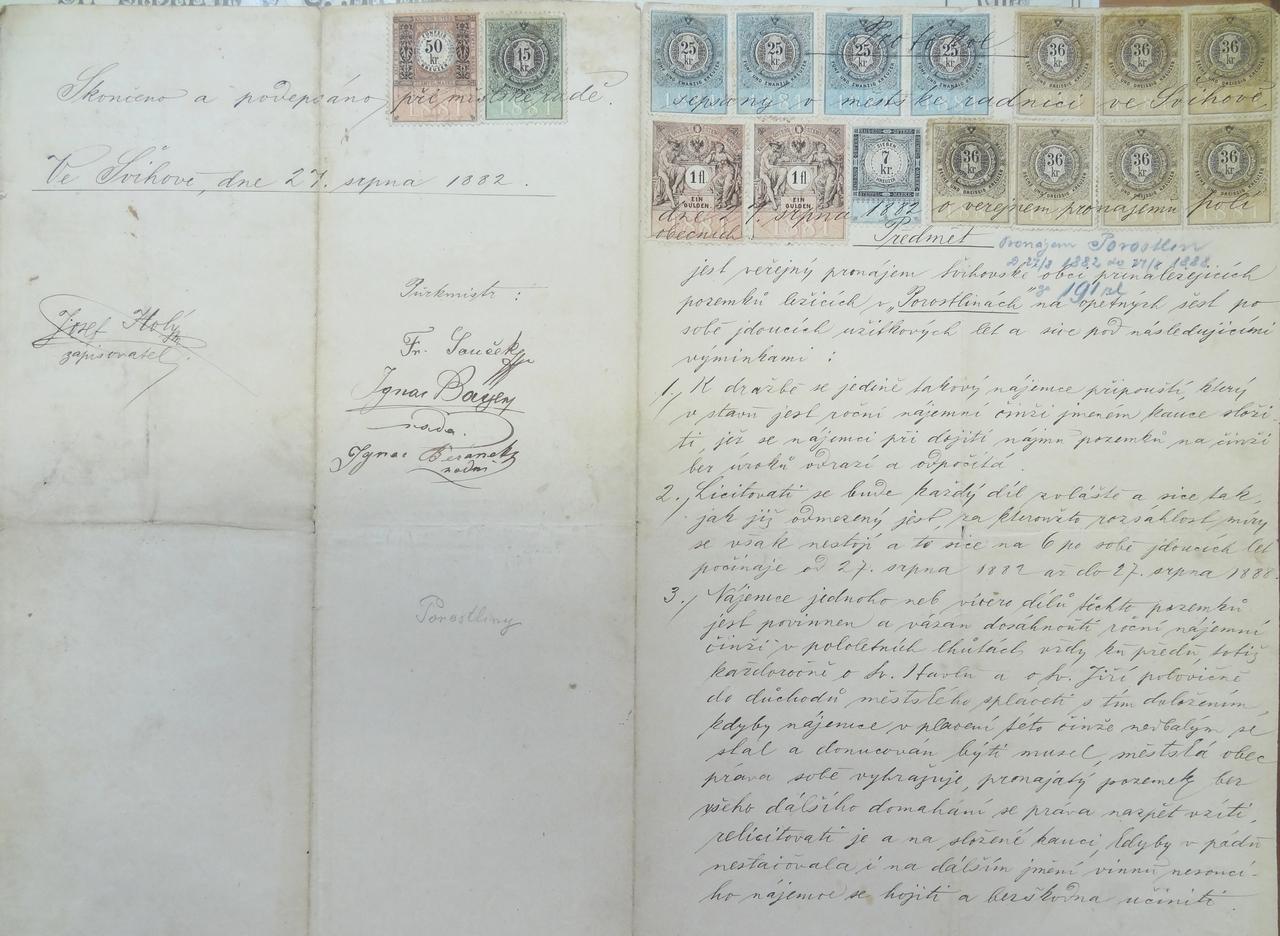 Skončeno a podepsáno při městské radě.
Ve Švihově, dne 27. srpna 1882.
Josef Holý
zapisovatel.
Purkmistr:
Fr. Souček
Ignac
rada.
Ignac Beránek
radní
Porostliny
50
kr
15
kr
25
kr
25
kr
25
kr
25
kr
36
kr
36
kr
36
kr
1 fl
EIN
GULDEN.
1 fl
EIN
GULDEN.
7
kr.
36
kr
36
kr
36
kr
36
kr
Protokol
sepsaný v městské radnici ve Švihově,
dne 27. srpna 1882 o veřejném pronajemu polí
obecních
Předmět
Pronájem Porostlin
27/8 1882 do 27/8 1888
191 zl
jest veřejný pronájem Švihovské obci přinaležejících
pozemků ležících v „Porostlinách" na opětných šest po
sobě jdoucích užitkových let a sice pod následujícími
výminkami:
1., K dražbě se jedině takový nájemce připouští, který
v stavu jest roční nájemní činži jmenem kauce složi
ti, jež se nájemci při dojití nájmu pozemků na činži
bez úroků odrazí a odpočítá.
2., Licitovati se bude každý díl zvláště a sice tak,
jak již odmezený jest, za kteroužto rozsáhlost míry
se však nestojí a to sice na 6 po sobě jdoucích let
počínaje od 27. srpna 1882 až do 27. srpna 1888.
3., Nájemce jednoho neb vícero dílů těchto pozemků
jest povinnen a vázán dosáhnoutí roční nájemní
činži v pololetních lhůtách vždy ku předu, totiž
každoročně o sv. Havlu a o sv. Jiří polovičně
do důchodů městského spláceti s tím doložením,
kdyby nájemce v placení této činže nedbalým se
stal a donucován býti musel, městská obec
práva sobě vyhražuje, pronajatý pozemek bez
všeho dálšího domahání se práva nazpět vzíti,
relicitovati je a na složené kauci, kdyby v pádu
nestačovala i na dálším jmění vinnu nesoucí-
ho nájemce se hojiti a bezškodna učiniti.